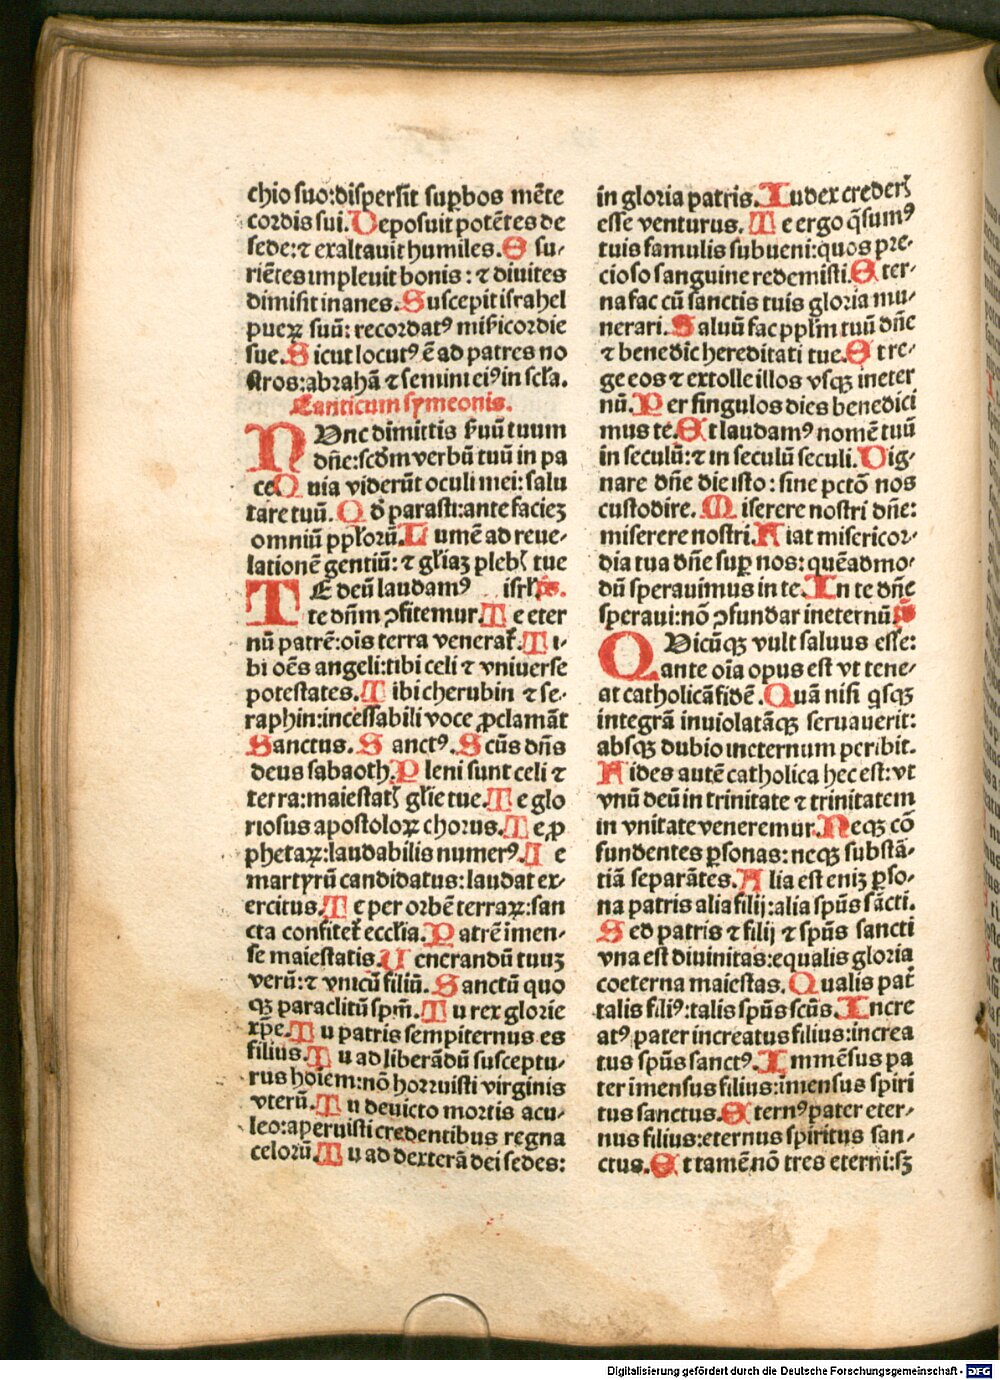 chio suo:dispersit sup̱bos mẽte
cordis sui.Deposuit potẽtes de
sede:⁊ exaltauit humiles.E su⸗
riẽtes impleuit bonis:⁊ diuites
dimisit inanes.Suscepit israhel
pueꝝ suũ: recordatꝰ mi̅sicordie
sue.Sicut locutꝰ ẽ ad patres no
stros:abrahã ⁊ semini eiꝰ in scła.
Canticum symeonis.
NUnc dimittis s̃uũ tuum
dñe:scđm verbũ tuũ in pa
ce Quia viderũt oculi mei: salu
tare tuũ. Qđ parasti:ante facieȝ
omniũ ppłorũ.Lumẽ ad reue⸗
lationẽ gentiũ: ⁊ głiaȝ plebꝭ tue
TE deũ laudamꝰ isrł.ps.
te dñm ꝯfitemur.Te eter
nũ patrẽ:oĩs terra venerat̃.Ti⸗
bi oẽs angeli:tibi celi ⁊ vniuerse
potestates.Tibi cherubin ⁊ se⸗
raphin:incessabili voce ꝓclamãt
Sanctus.Sanctꝰ.Scũs dñs
deus sabaoth.Pleni sunt celi ⁊
terra:maiestatꝭ głie tue.Te glo
riosus apostoloꝝ chorus.Te ꝓ
phetaꝝ:laudabilis numerꝰ.Te
martyrũ candidatus:laudat ex⸗
ercitus.Te per orbẽ terraꝝ:san
cta confitet̃ ecclĩa.Patrẽ ĩmen⸗
se maiestatis.Uenerandũ tuuȝ
verũ:⁊ vnicũ filiũ.Sanctũ quo
qꝫ paraclitũ spm̃.Tu rex glorie
xp̃e.Tu patris sempiternus es
filius.Tu ad liberãdũ susceptu⸗
rus hoĩem:nõ horruisti virginis
vterũ.Tu deuicto mortis acu⸗
leo:aperuisti credentibus regna
celorũ.Tu ad dexterã dei sedes:
in gloria patris.Iudex crederꝭ
esse venturus.Te ergo q̃sumꝰ
tuis famulis subueni:quos pre⸗
cioso sanguine redemisti.Eter⸗
na fac cũ sanctis tuis gloria mu⸗
nerari.Saluũ fac ppłm tuũ dñe
⁊ benedic hereditati tue.Et re⸗
ge eos ⁊ extolle illos vsqꝫ in eter
nũ.Per singulos dies benedici
mus te.Et laudamꝰ nomẽ tuũ
in seculũ:⁊ in seculũ seculi.Dig⸗
nare dñe die isto: sine pctõ nos
custodire.Miserere nostri dñe:
miserere nostri.Fiat misericor⸗
dia tua dñe sup̱ nos: quẽadmo⸗
dũ sperauimus in te.In te dñe
speraui:nõ ꝯfundar in eternũ.ps
QUicũqꝫ vult saluus esse:
ante oĩa opus est vt tene⸗
at catholicã fidẽ.Quã nisi qͥsqꝫ
integrã inuiolatãqꝫ seruauerit:
absqꝫ dubio in eternum peribit.
Fides autẽ catholica hec est:vt
vnũ deũ in trinitate ⁊ trinitatem
in vnitate veneremur.Neqꝫ cõ
fundentes ꝑsonas: neqꝫ substã⸗
tiã separãtes.Alia est eniȝ ꝑso⸗
na patris alia filij:alia spũs sãcti.
Sed patris ⁊ filij ⁊ spũs sancti
vna est diuinitas:equalis gloria
coeterna maiestas.Qualis pat̃
talis filiꝰ:talis spũs scũs.Incre
atꝰ pater increatus filius:increa
tus spũs sanctꝰ.Immẽsus pa
ter ĩmensus filius:ĩmensus spiri
tus sanctus.Eternꝰ pater eter⸗
nus filius:eternus spiritus san⸗
ctus.Et tamẽ nõ tres eterni:sȝ
Digitalisierung gefördert durch die Deutsche Forschungsgemeinschaft - DFG